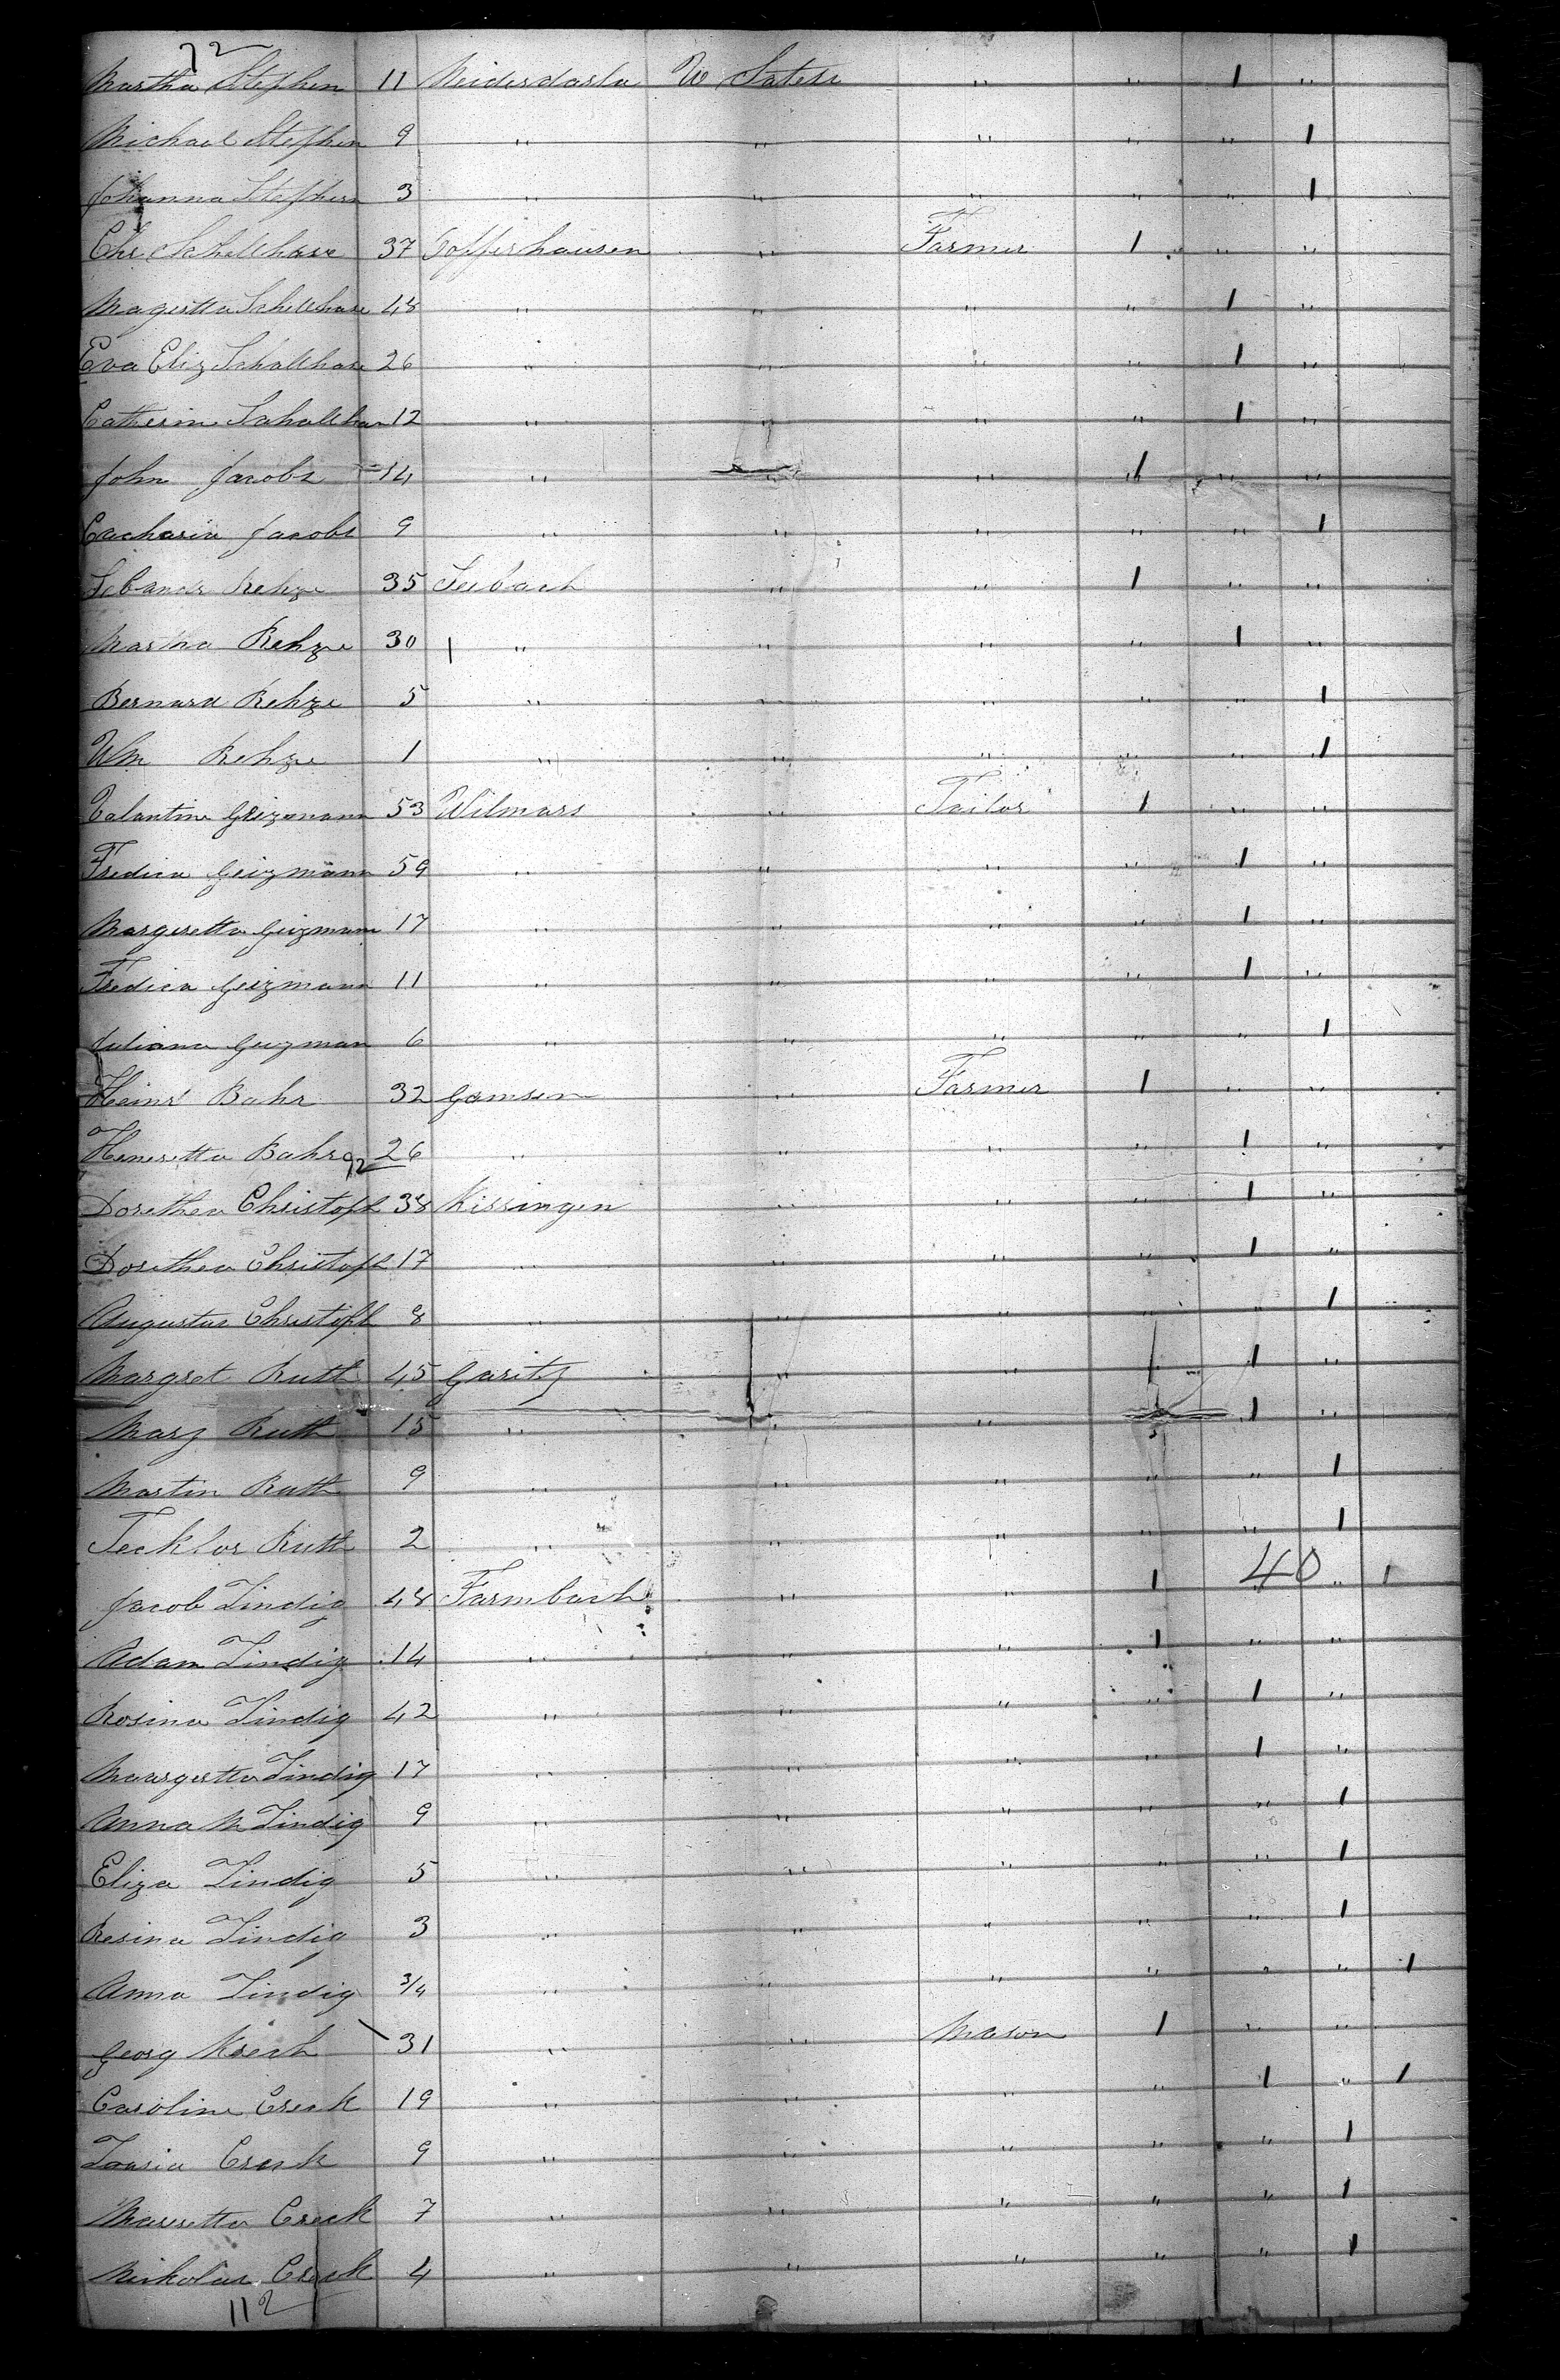 72
Martha Stephen 11 Neiderdarla W States " " 1 "
Michael Stephen 9 " " " " " 1
Johanna Stephen 3 " " " " " 1
Chr Schellhase 37 Tofferhausen " Farmer 1 " "
Magretta Schellhase 48 " " " " 1 "
Eva Eliz Schallhase 26 " " " " 1 "
Catherine Schallhas 12 " " " " 1 "
John Jacobs 14 " " " 1 " "
Zacharia Jacobs 9 " " " " " 1
Rehze 35 Seebach " " 1 " "
Martha Rehze 30 " " " " 1 "
Bernard Rehze 5 " " " " " 1
Wm Rehze 1 " " " " " 1
Valantine Geizmann 53 Wilmars " Tailor 1 " "
Fredica Geizmann 59 " " " " 1 "
Margretta Geizmann 17 " " " " 1 "
Fredica Geizmann 11 " " " " 1 "
Juliana Geizman 6 " " " " " 1
Heinr Bahr 32 Gamsen " Farmer 1 " "
Heneretta Bahr 92 26 " " " " 1 "
Dorethea Christoph 38 Kissingen " " " 1 "
Dorethea Christoph 17 " " " " 1 "
Augustus Christoph 8 " " " " " 1
Margret Ruth 45 Garitz " " 1 "
Mary Ruth 15 " " " 1 "
Martin Ruth 9 " " " " " 1
Tecklor Ruth 2 " " " " " 1
Jacob Lindig 48 Farmbach " " 1 40 " 1
Adam Lindig 14 " " " 1 " "
Rosina Lindig 42 " " " " 1 "
Margretta Lindig 17 " " " " 1 "
Anna M Lindig 9 " " " " " 1
Eliza Lindig 5 " " " " " 1
Resina Lindig 3 " " " " " 1
Anna Lindig 3/4 " " " " " " 1
Georg Krech 31 " " Mason 1 " "
Caroline Creck 19 " " " " 1 " 1
Lousia Creck 9 " " " " " 1
Maretta Creck 7 " " " " " 1
Nickolas Creck 4 " " " " " 1
112